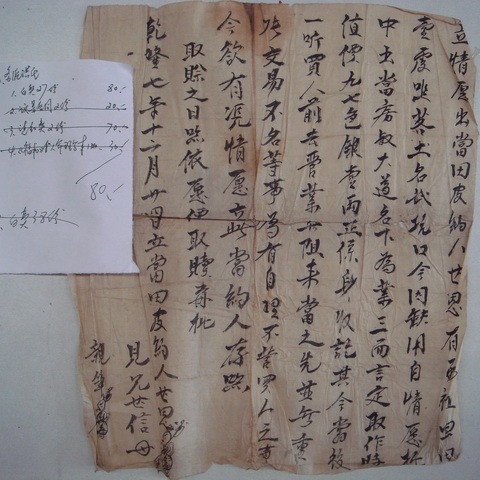 立情愿出當田皮約人世恩有承祖早田
壹處坐落土名武坑口今因缺用自情愿托
中出當房叔大道名下為業三面言定取作時
值價九七色銀壹兩正係身收訖其今當後
一听買人前去管業無阻未當之先並無重
張交易不名等事為有自理不管買人之事
今欲有凭情愿立此當約人存照
取贖之日照依愿價取贖再批
乾隆七年十二月廿日立當田皮約人世恩
見兄世信母
親筆
80.-
20.-
70.-
80.-